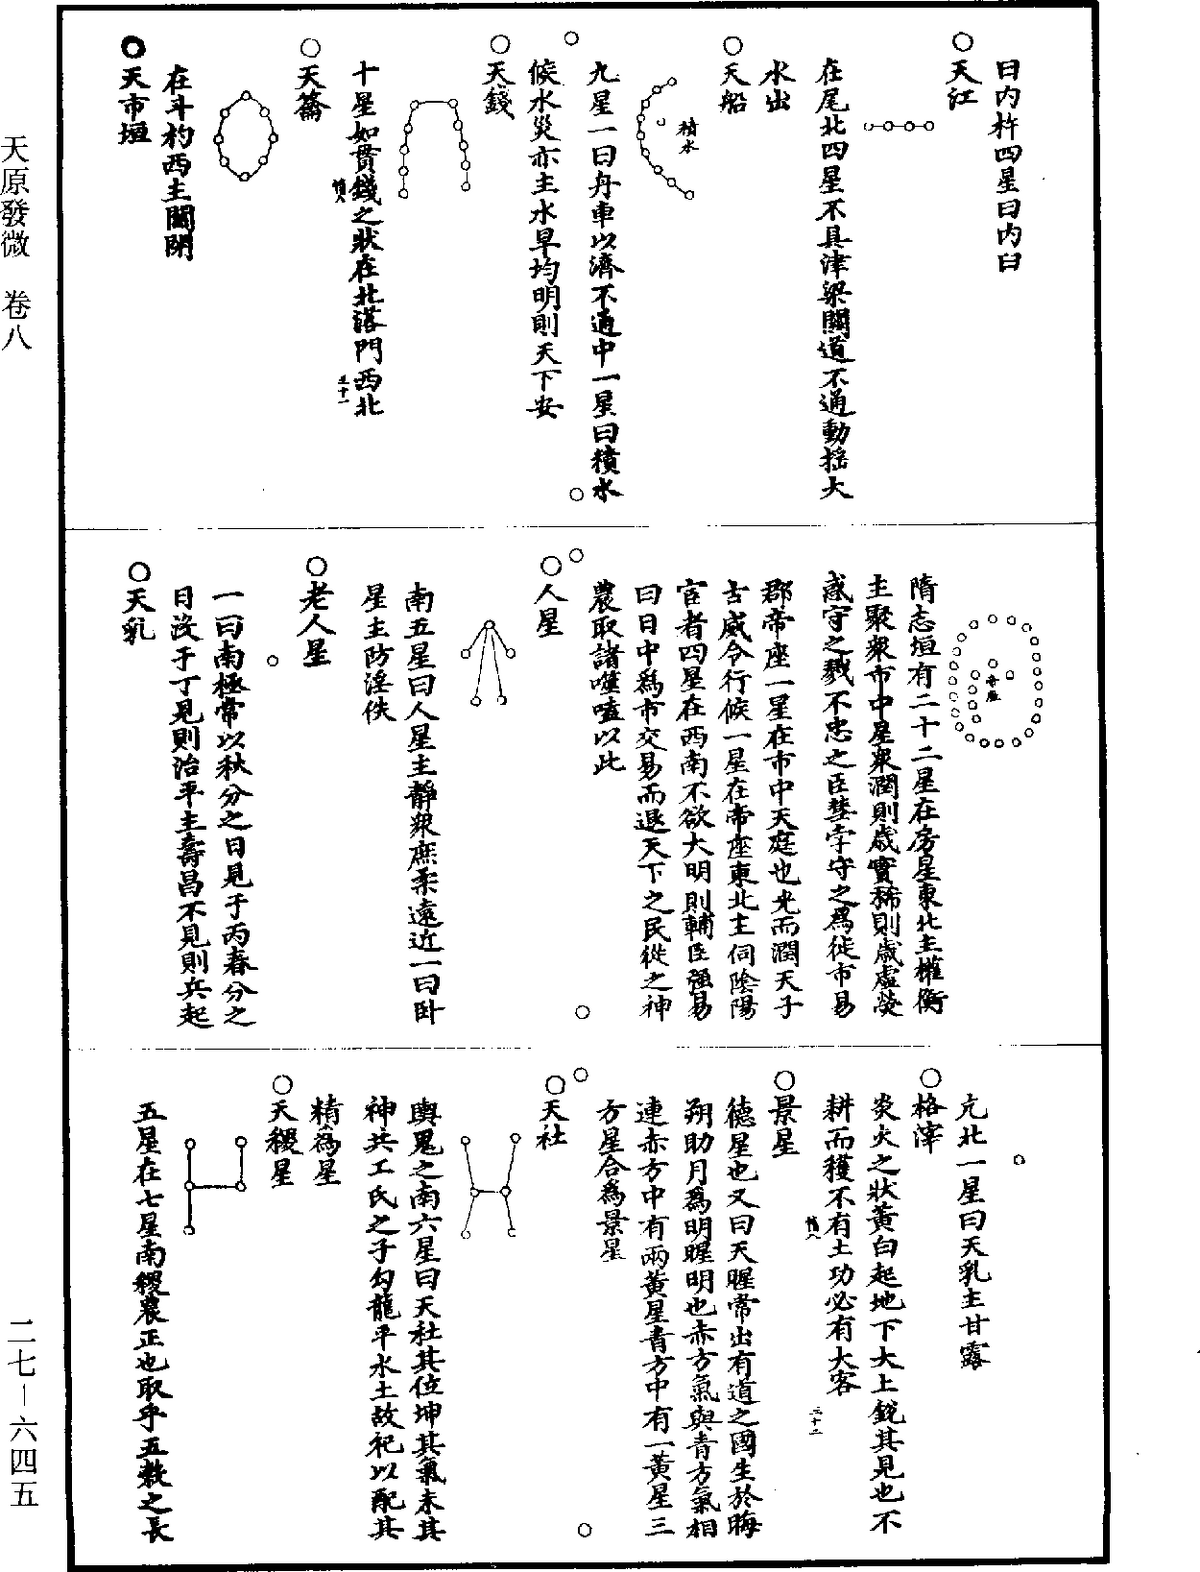 天原發微　卷八
曰內杵四星曰內臼
○天江
在尾北四星不具津梁關道不通動搖大
水出
○天船
積水
九星一曰舟車以濟不通中一星曰積水
候水災亦主水旱均明則天下安
○天錢
十星如貫錢之狀在北落門西北
慎八
三十一
○天籥
在斗杓西主關閉
○天市垣
帝座
隋志垣有二十二星在房星東北主權衡
主聚衆市中星衆潤則歲實稀則歲虛熒
惑守之戮不忠之臣彗孛守之爲徙市易
郡帝座一星在市中天庭也光而潤天子
吉威令行候一星在帝座東北主伺陰陽
宦者四星在西南不欲大明則輔臣强易
曰日中爲市交易而退天下之民從之神
農取諸噬嗑以此
○人星
南五星曰人星主靜衆庶柔遠近一曰卧
星主防淫佚
○老人星
一曰南極常以秋分之日見于丙春分之
日沒于丁見則治平主壽昌不見則兵起
○天乳
亢北一星曰天乳主甘露
○格澤
炎火之狀黃白起地下大上銳其見也不
耕而穫不有土功必有大客
慎八
三十二
○景星
德星也又曰天暒常出有道之國生於晦
朔助月爲明暒明也赤方氣與青方氣相
連赤方中有兩黃星青方中有一黃星三
方星合爲景星
○天社
輿鬼之南六星曰天社其位坤其氣未其
神共工氏之子勾龍平水土故祀以配其
精爲星
○天稷星
五星在七星南稷農正也取乎五穀之長
二七－六四五